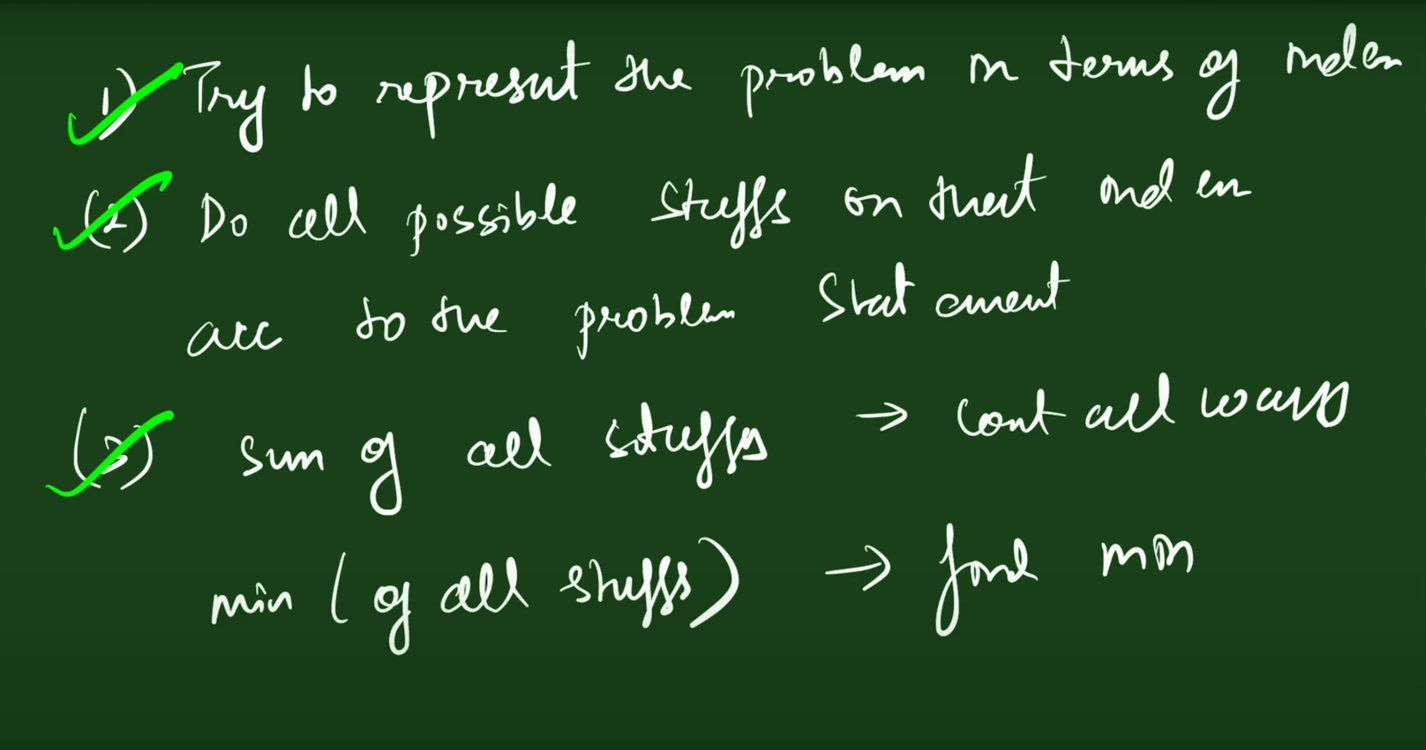 1) Try to represent the problem in terms of index
(2) Do all possible stuffs on that index
acc to the problem Statement
(3) sum of all stuffs → count all ways
min (of all stuffs) → find min